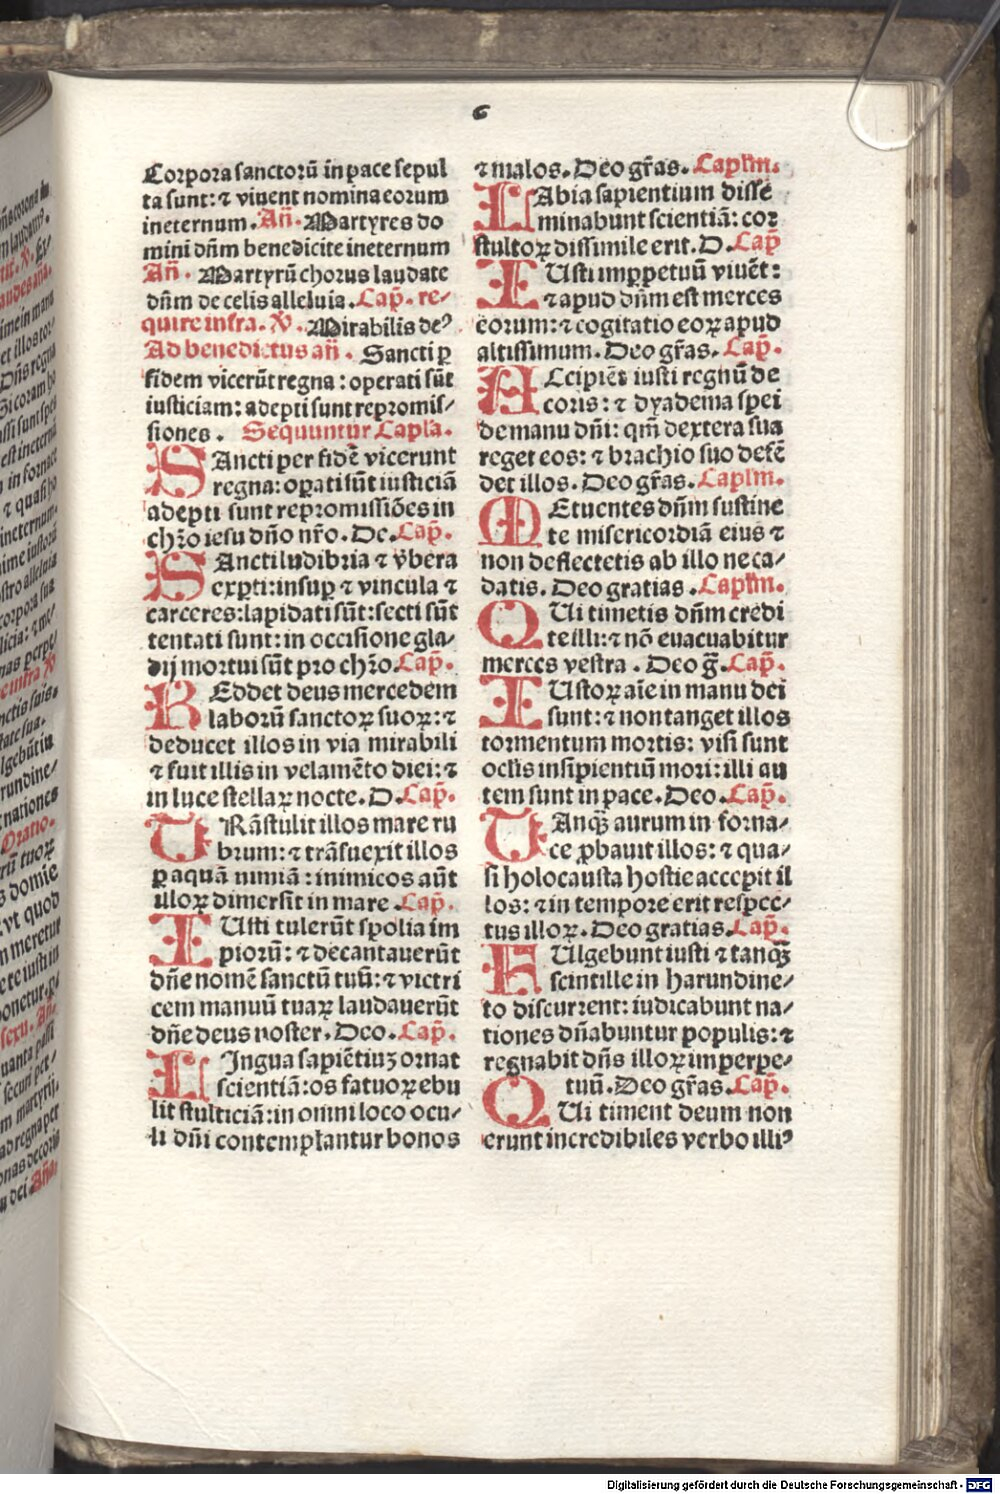 6
Corpora sanctorū in pace sepul
ta sunt: ⁊ viuent nomina eorum
ineternum. Añ. Martyres do
mini dn̄m benedicite ineternum
Añ. Martyrū chorus laudate
dn̄m de celis alleluia. Cap̄. re/
quire infra. ℣. Mirabilis deꝰ
Ad benedictus añ. Sancti ꝑ
fidem vicerūt regna: operati sūt
iusticiam: adepti sunt repromis/
siones. Sequuntur Capl̄a.
SAncti per fidē vicerunt
regna: oꝑati sūt iusticiā
adepti sunt repromissiōes in
chr̄o iesu dn̄o nr̄o. De. Cap̄.
SAncti ludibria ⁊ v̄bera
exꝑti: insuꝑ ⁊ vincula ⁊
carceres: lapidati sūt: secti sūt
tentati sunt: in occisione gla/
dij mortui sūt pro chr̄o. Cap̄.
REddet deus mercedem
laborū sanctoꝝ suoꝝ: ⁊
deducet illos in via mirabili
⁊ fuit illis in velamēto diei: ⁊
in luce stellaꝝ nocte. D. Cap̄.
TRāstulit illos mare ru
brum: ⁊ trāsuexit illos
ꝑ aquā nimiā: inimicos aūt
illoꝝ dimersit in mare. Cap̄.
IUsti tulerūt spolia im
piorū: ⁊ decantauerūt
dn̄e nomē sanctū tuū: ⁊ victri
cem manuū tuaꝝ laudauerūt
dn̄e deus noster. Deo. Cap̄.
LIngua sapiētiuꝫ ornat
scientiā: os fatuoꝝ ebu
lit stulticiā: in omni loco ocu/
li dn̄i contemplantur bonos
⁊ malos. Deo gr̄as. Capl̄m.
LAbia sapientium disse
minabunt scientiā: cor
stultoꝝ dissimile erit. D. Cap̄
IUsti imꝑpetuū viuēt:
⁊ apud dn̄m est merces
eorum: ⁊ cogitatio eoꝝ apud
altissimum. Deo gr̄as. Cap̄.
ACcipiēt iusti regnū de
coris: ⁊ dyadema spei
de manu dn̄i: qm̄ dextera sua
reget eos: ⁊ brachio suo defē
det illos. Deo gr̄as. Capl̄m.
MEtuentes dn̄m sustine
te misericordiā eius ⁊
non deflectetis ab illo ne ca/
datis. Deo gratias. Capl̄m.
QUi timetis dn̄m credi
te illi: ⁊ nō euacuabitur
merces vestra. Deo ḡ. Cap̄.
IUstoꝝ aīe in manu dei
sunt: ⁊ non tanget illos
tormentum mortis: visi sunt
oclis insipientiū mori: illi au
tem sunt in pace. Deo. Cap̄.
TAnqꝫ aurum in forna/
ce ꝓbauit illos: ⁊ qua/
si holocausta hostie accepit il
los: ⁊ in tempore erit respec/
tus illoꝝ. Deo gratias. Cap̄.
FUlgebunt iusti ⁊ tanqꝫ
scintille in harundine/
to discurrent: iudicabunt na/
tiones dn̄abuntur populis: ⁊
regnabit dn̄s illoꝝ imperpe/
tuū. Deo gr̄as. Cap̄.
QUi timent deum non
erunt incredibiles verbo illiꝰ
Digitalisierung gefördert durch die Deutsche Forschungsgemeinschaft - DFG